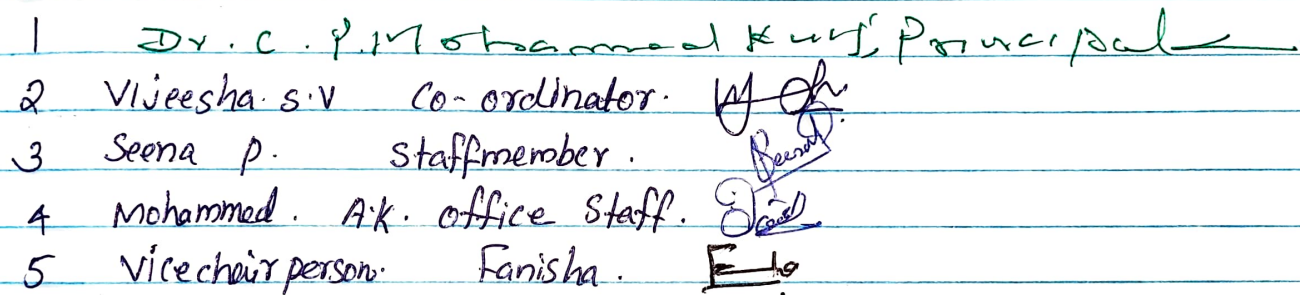 1 Dr. C. P. Mohammed Kunj Principal
2 Vijeesha. S.V Co-ordinator.
3 Seena P. Staffmember.
4 Mohammed. A.K. office Staff.
5 Vicechairperson. Fanisha.